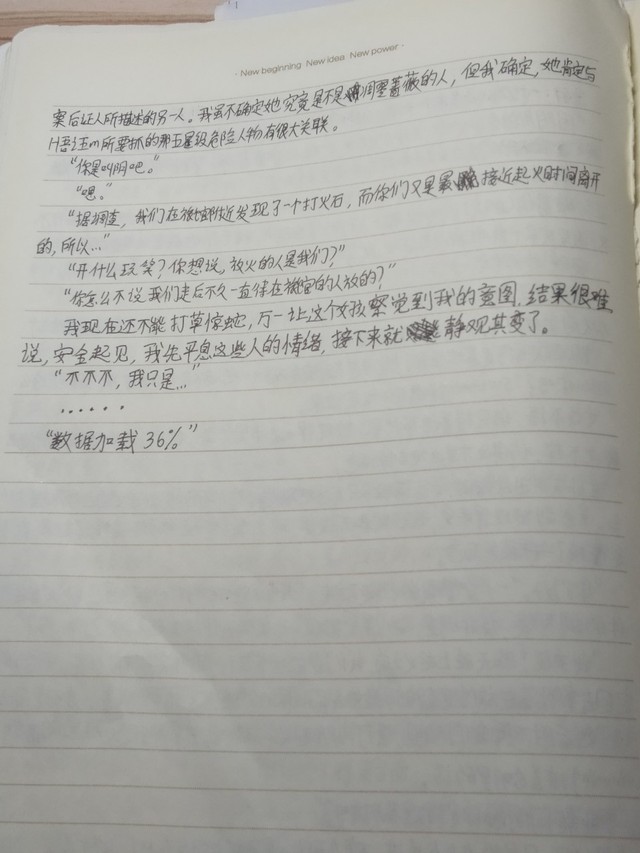 · New beginning New idea New power ·
案后证人所描述的另一人。我虽不确定她究竟是不是 蔷薇的人，但我确定，她肯定与
所要抓的那五星级危险人物有很大关联。
“你是叫阴吧。”
“嗯。”
“据调查，我们在 附近发现了一个打火石，而你们又是最 接近起火时间离开
的，所以…”
“开什么玩笑？你想说，放火的人是我们？”
“你怎么不说我们走后不久一直待在 的人放的？”
我现在还不能打草惊蛇，万一让这个女孩察觉到我的意图，结果很难
说，安全起见，我先平息这些人的情绪，接下来就 静观其变了。
“不不不，我只是…”
······
“数据加载 36%”